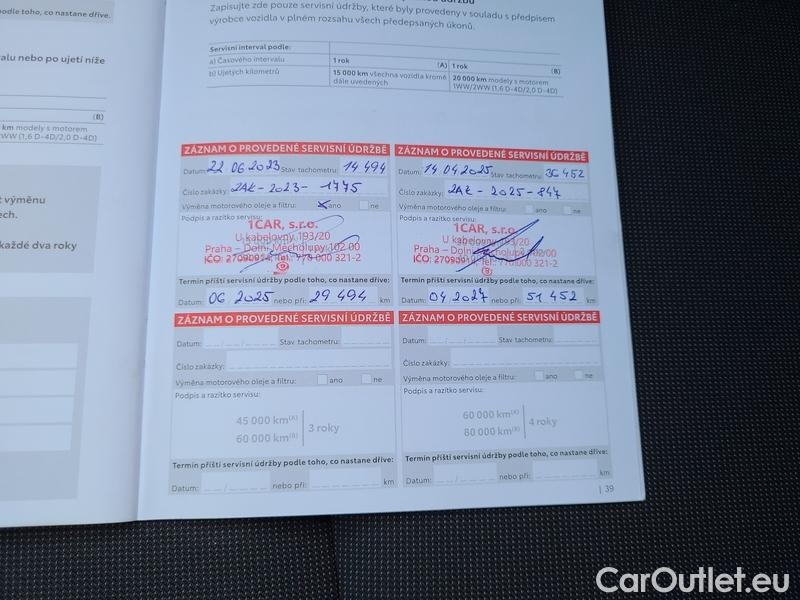 Zapisujte zde pouze servisní údržby, které byly provedeny v souladu s předpisem
výrobce vozidla v plném rozsahu všech předepsaných úkonů.
Servisní interval podle:
a) Časového intervalu 1 rok (A) 1 rok (B)
b) Ujetých kilometrů 15 000 km všechna vozidla kromě dále uvedených 20 000 km modely s motorem 1WW/2WW (1,6 D-4D/2,0 D-4D)
podle toho, co nastane dříve.
alu nebo po ujetí níže
(B)
km modely s motorem
WW (1,6 D-4D/2,0 D-4D)
t výměnu
ech.
každé dva roky
ZÁZNAM O PROVEDENÉ SERVISNÍ ÚDRŽBĚ
Datum: 22 06 2023 Stav tachometru: 14 494
Číslo zakázky: 2AK - 2023 - 1775
Výměna motorového oleje a filtru: ano ne
Podpis a razítko servisu:
1CAR, s.r.o.
U kabelovny 193/20
Praha – Dolní Měcholupy 102 00
IČO: 27090914, Tel.: 770 000 321-2
Termín příští servisní údržby podle toho, co nastane dříve:
Datum: 06 2025 nebo při: 29 494 km
ZÁZNAM O PROVEDENÉ SERVISNÍ ÚDRŽBĚ
Datum: 14 04 2025 Stav tachometru: 36 452
Číslo zakázky: 2AK - 2025 - 847
Výměna motorového oleje a filtru: ano ne
Podpis a razítko servisu:
1CAR, s.r.o.
U kabelovny 193/20
Praha – Dolní Měcholupy 102 00
Termín příští servisní údržby podle toho, co nastane dříve:
Datum: 04 2027 nebo při: 51 452 km
ZÁZNAM O PROVEDENÉ SERVISNÍ ÚDRŽBĚ
Datum: Stav tachometru:
Číslo zakázky:
Výměna motorového oleje a filtru: ano ne
Podpis a razítko servisu:
45 000 km(A)
60 000 km(B)
3 roky
Termín příští servisní údržby podle toho, co nastane dříve:
Datum: nebo při: km
ZÁZNAM O PROVEDENÉ SERVISNÍ ÚDRŽBĚ
Datum: Stav tachometru:
Číslo zakázky:
Výměna motorového oleje a filtru: ano ne
Podpis a razítko servisu:
60 000 km(A)
80 000 km(B)
4 roky
Termín příští servisní údržby podle toho, co nastane dříve:
Datum: nebo při: km
| 39
CarOutlet.eu